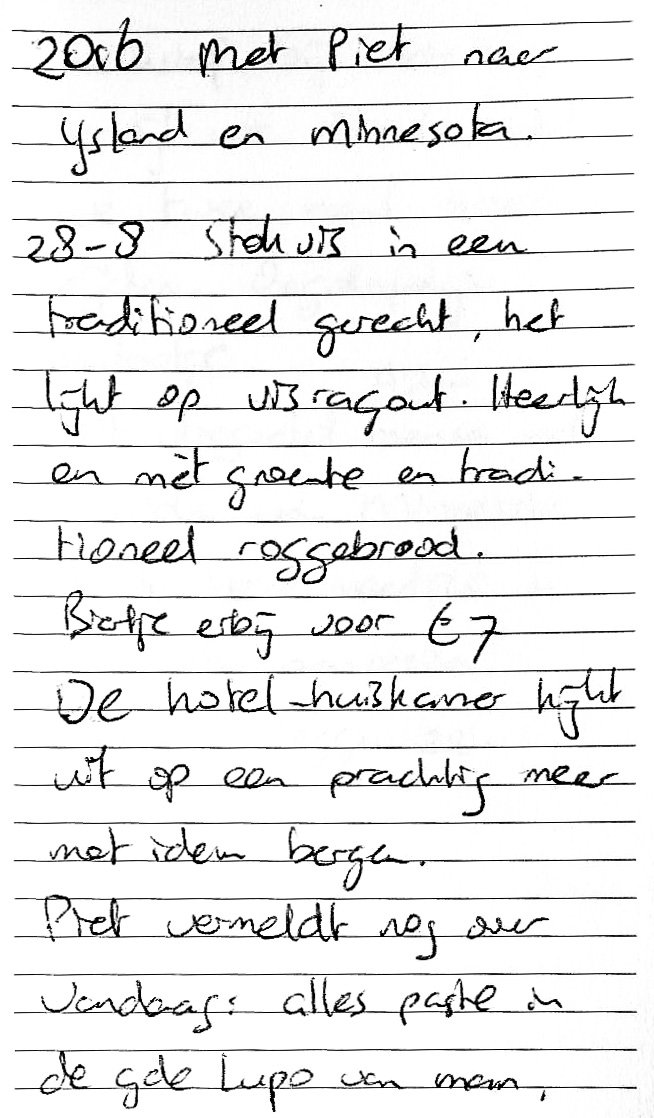 2006 Met Piet naar
Ysland en Minnesota.
28-8 Stokvis in een
traditioneel gerecht, het
lijkt op visragout. Heerlijk
en mèt groente en tradi-
tioneel roggebrood.
Biertje erbij voor € 7
De hotel-huiskamer kijkt
uit op een prachtig meer
met idem bergen.
Piet vermeldt nog over
vandaag: alles paste in
de gde Lupo van mam,